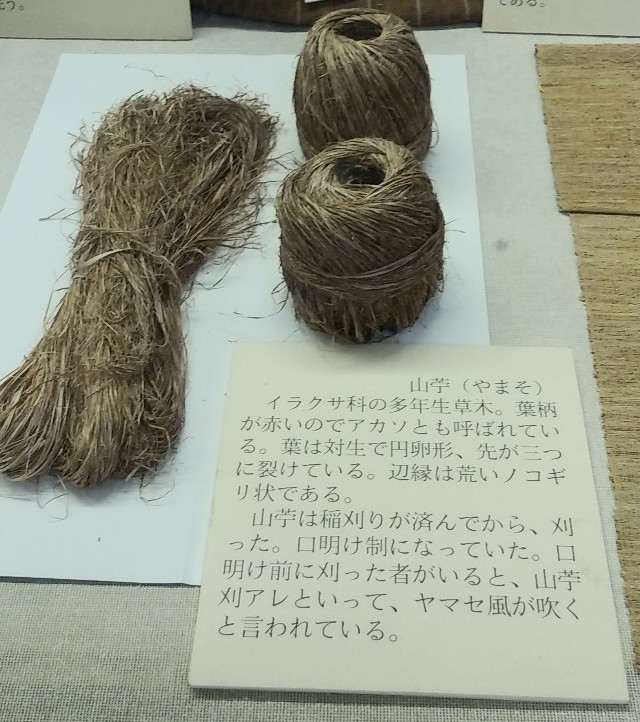 う。
である。
山苧（やまそ）
イラクサ科の多年生草木。葉柄
が赤いのでアカソとも呼ばれてい
る。葉は対生で円卵形、先が三つ
に裂けている。辺縁は荒いノコギ
リ状である。
山苧は稲刈りが済んでから、刈
った。口明け制になっていた。口
明け前に刈った者がいると、山苧
刈アレといって、ヤマセ風が吹く
と言われている。